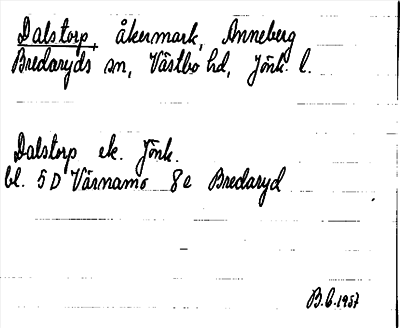 Dalstorp, åkermark, Anneberg
Bredaryds sn, Västbo hd, Jönk. l.
Dalstorp ek. Jönk.
bl. 5 D Värnamo 8 e Bredaryd
B.C. 1957